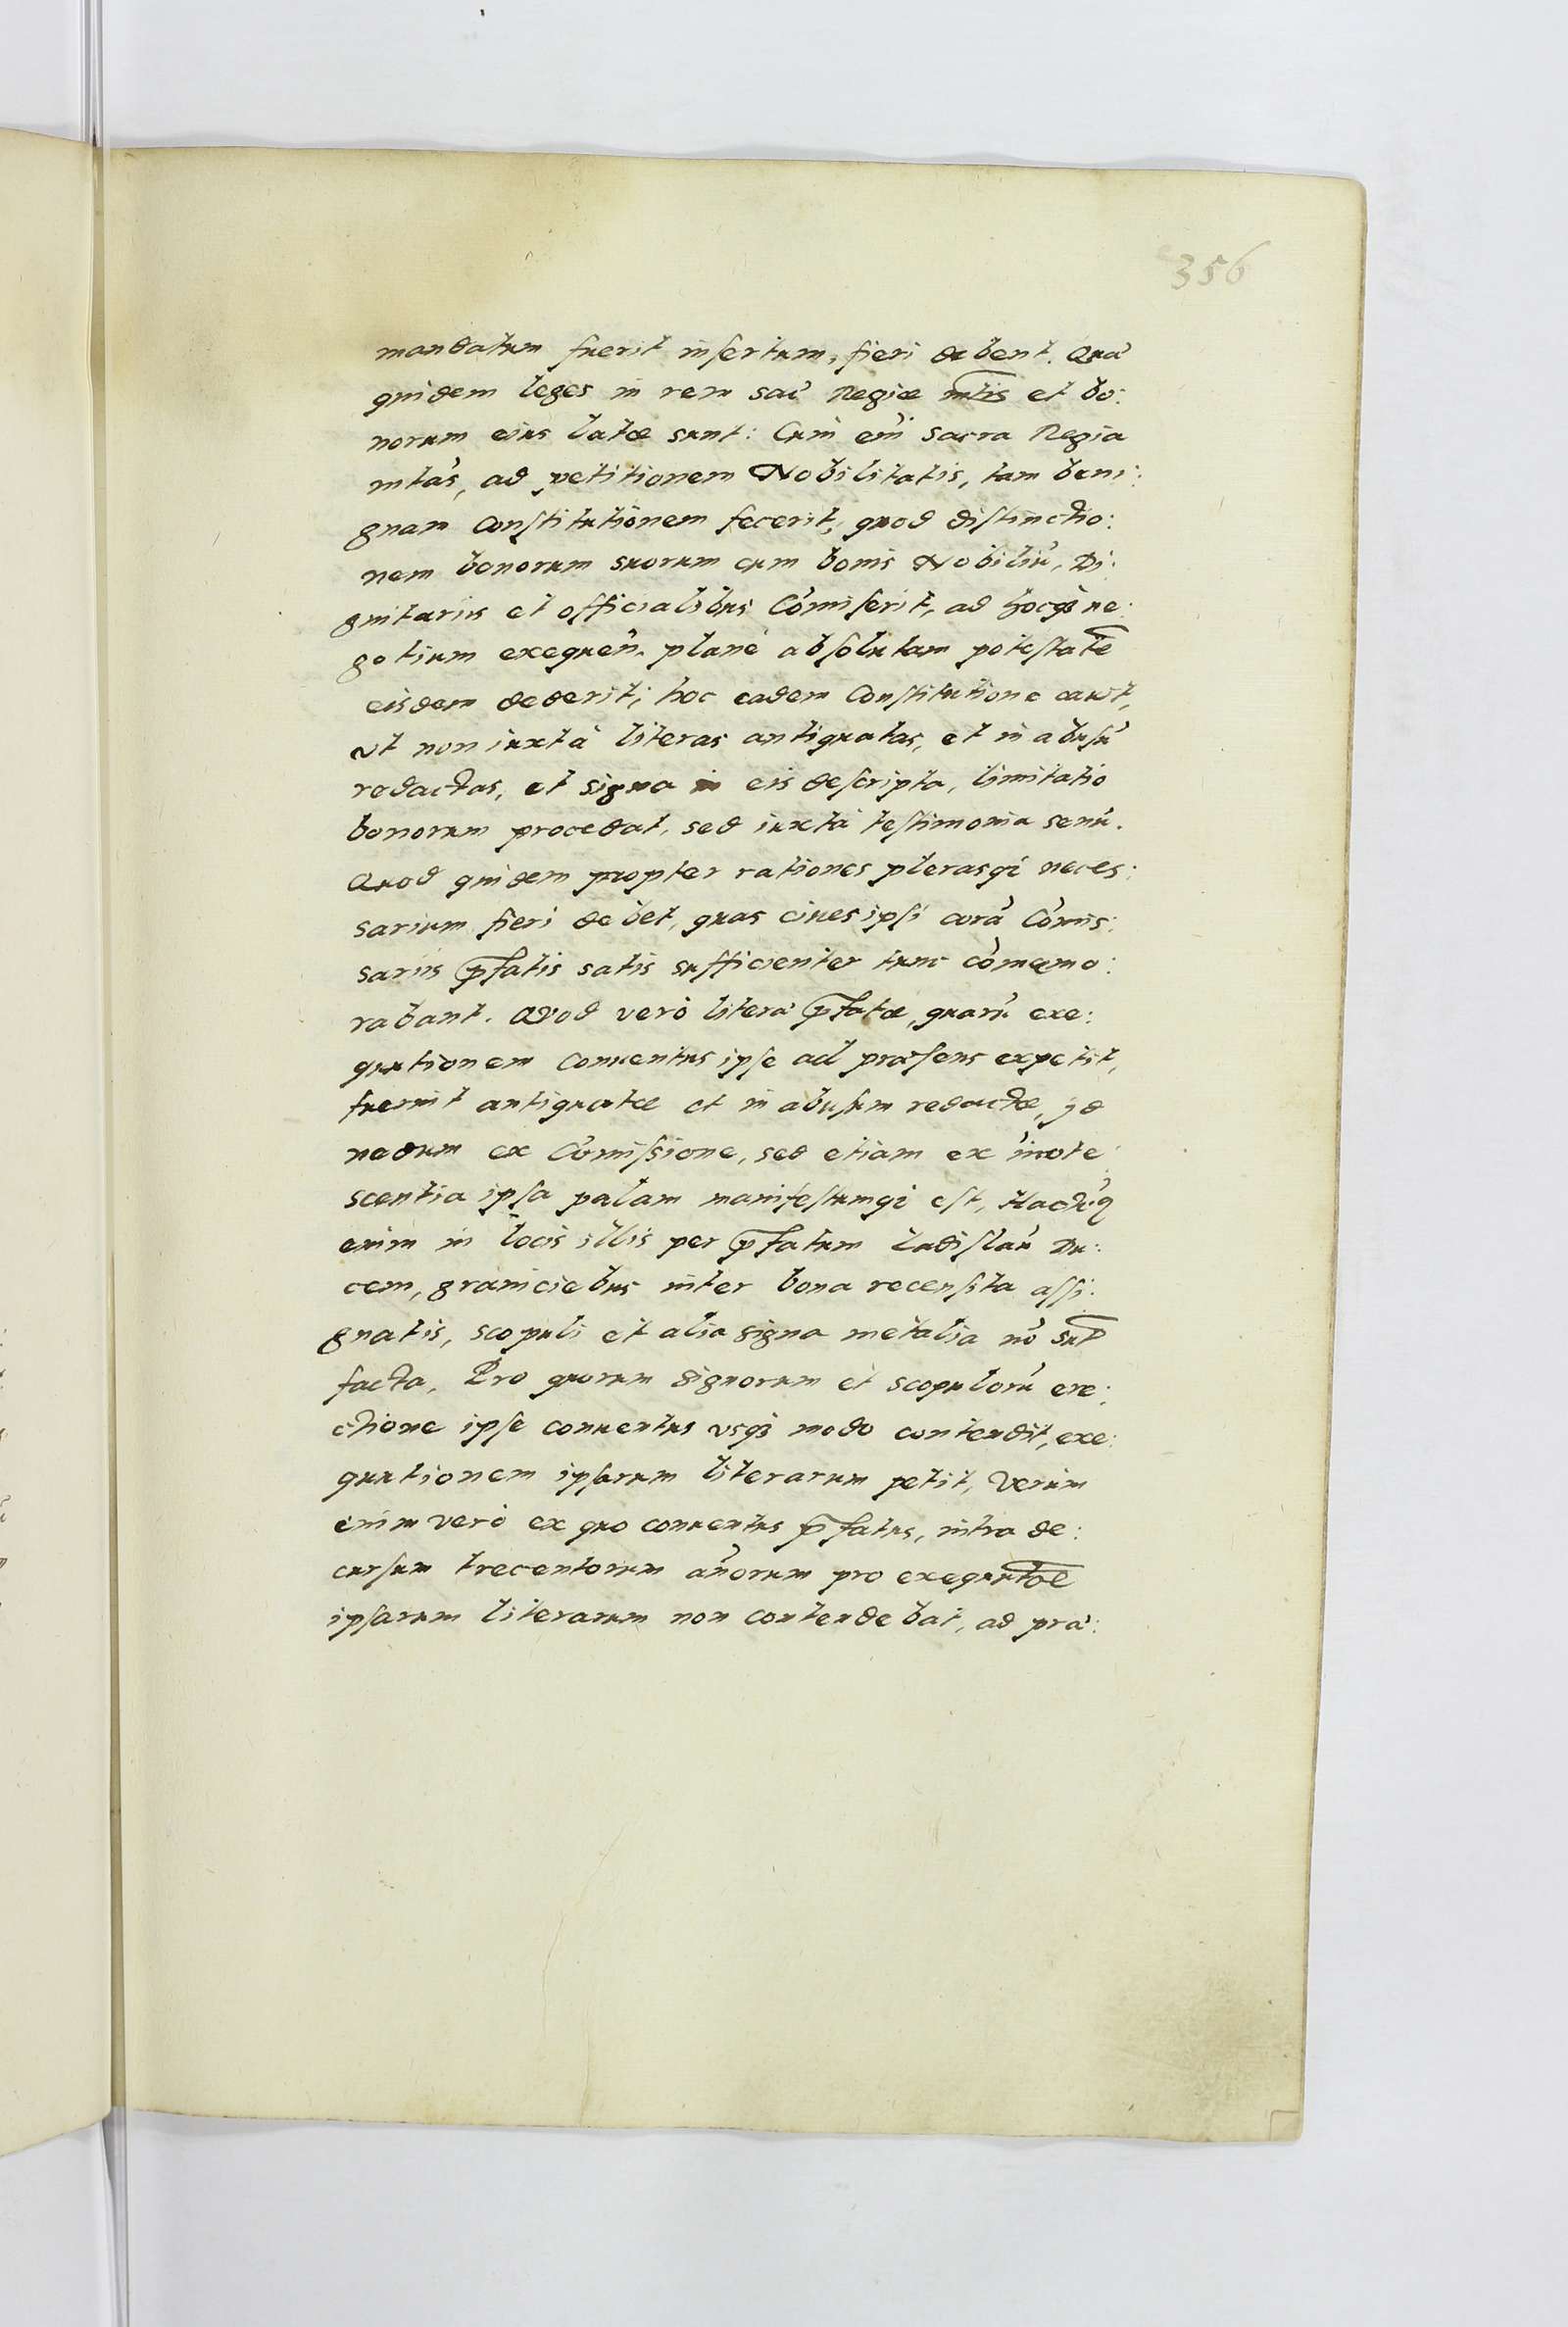 356
mandatum fuerit insertum, fieri debent. Quæ
quidem leges in rem sac Regiæ mtis et bo:
norum eius latæ sunt: Cum em̃ sacra Regia
mtas, ad petitionem Nobilitatis, tam beni:
gnam Constitutionem fecerit, quod distinctio:
nem bonorum suorum cum bonis Nobiliũ, Di:
gnitariis et officialibus Com̃iserit, ad hocq́ ne:
gotium exequen̄. planè absolutam potestatē
eisdem dederit; hoc eadem Constitutione cauit,
vt non iuxtà literas antiquatas, et in abusũ
redactas, et signa in eis descripta, limitatio
bonorum procedat, sed iuxtà testimonia senũ.
Quod quidem propter rationes plerasq́ neces:
sarium fieri debet, quas ciues ipsi corã Com̃is:
sariis p̃fatis satis sufficienter tunc com̃emo:
rabant. Quod verò literæ p̃fatæ, quarũ exe:
quutionem Conuentus ipse ad præsens expetit,
fuerint antiquatæ et in abusum redactæ, id
nedum ex Com̃issione, sed etiam ex iñote
scentia ipsa palam manifestumq́ est, Hacten9
enim in locis illis per p̃fatum Ladislaũ Du:
cem, graniciebus inter bona recensita assi:
gnatis, scopuli et alia signa metalia nõ sunt
facta, Pro quorum signorum et scopulorũ ere:
ctione ipse conuentus vsq́ modo contendit, exe:
quutionem ipsarum literarum petit, Verùm
enim verò ex quo conuentus p̃fatus, intra de:
cursum trecentorum an̄orum pro exequutõe
ipsarum literarum non contendebat, ad præ: